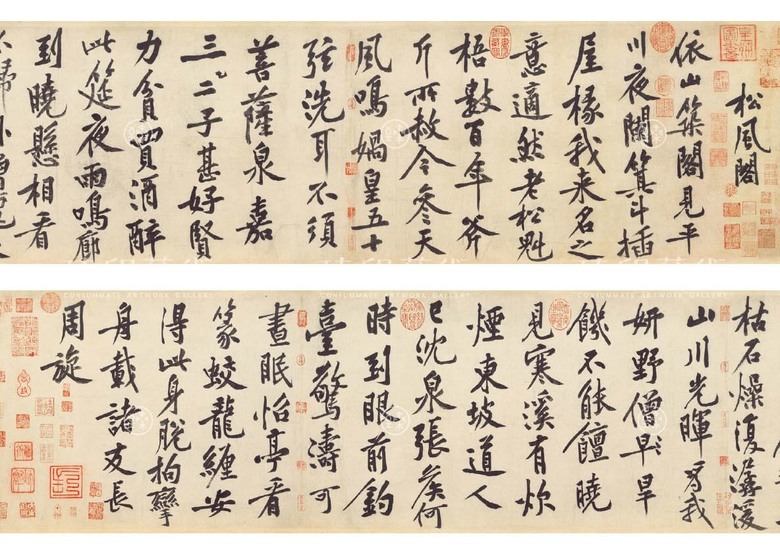 松風閣
依山築閣見平
川夜闌箕斗插
屋椽我来名之
意適然老松魁
梧數百年斧
斤所赦令參天
風鳴媧皇五十
弦洗耳不須
菩薩泉嘉
三二子甚好賢
力貧買酒醉
此筵夜雨鳴廊
到曉懸相看
不歸卧僧
枯石燥復潺湲
山川光暉為我
妍野僧早旱
饑不能饘曉
見寒溪有炊
煙東坡道人
已沈泉張矦何
時到眼前釣
臺驚濤可
晝眠怡亭看
篆蛟龍纏安
得此身脱拘攣
舟載諸友長
周旋
CONSUMMATE ARTWORK GALLERY
CONSUMMATE ARTWORK GALLERY